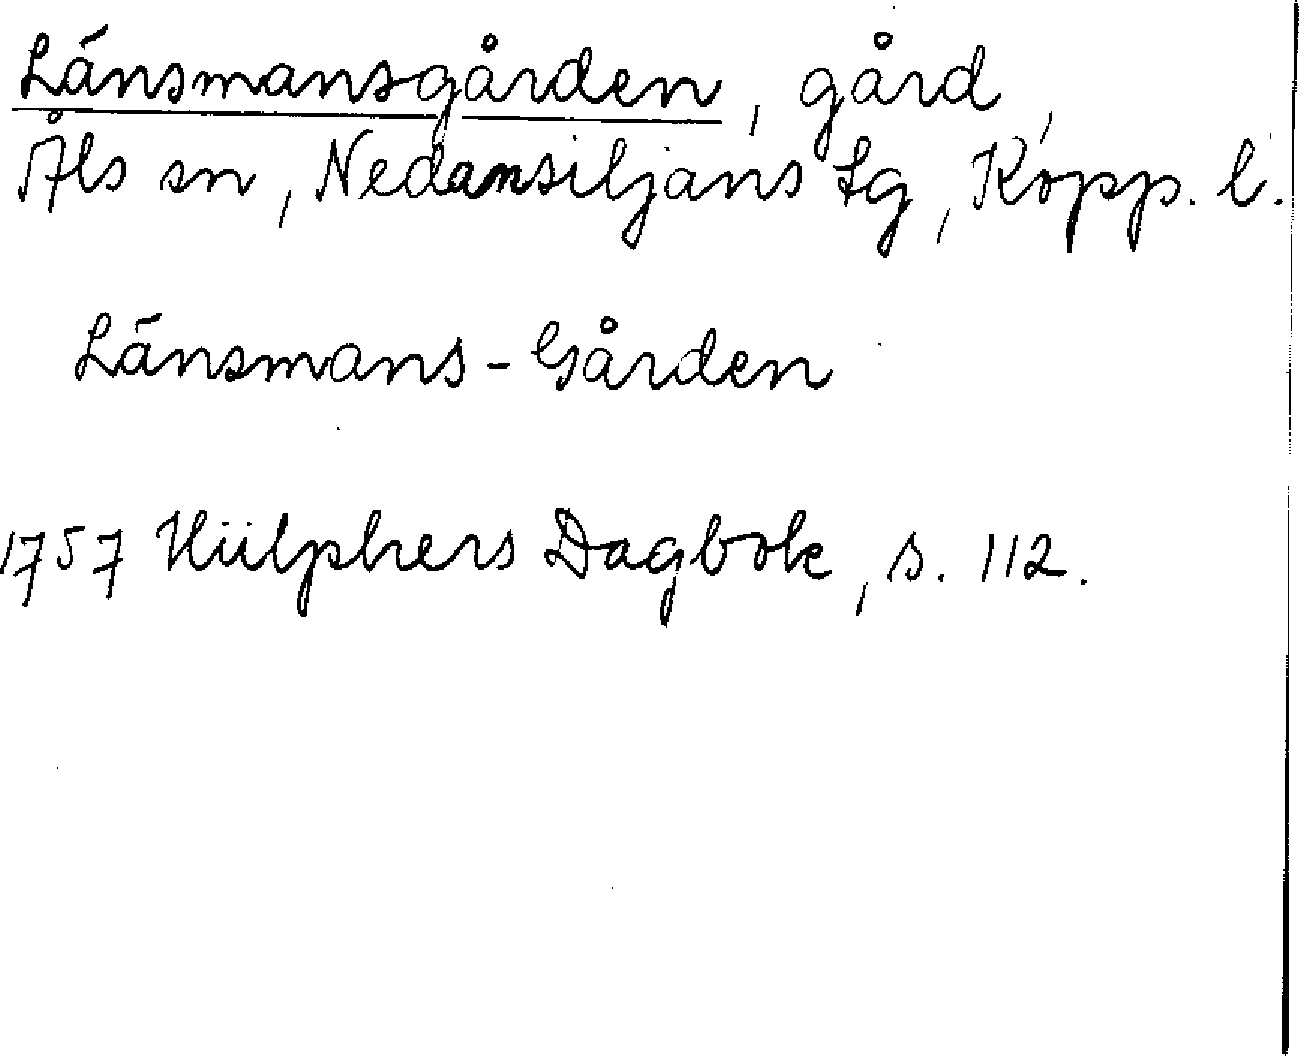 Länsmansgården, gård,
Åls sn, Nedansiljans tg, Kopp. l.
Länsmans-Gården
1757 Hülphers Dagbok, s. 112.